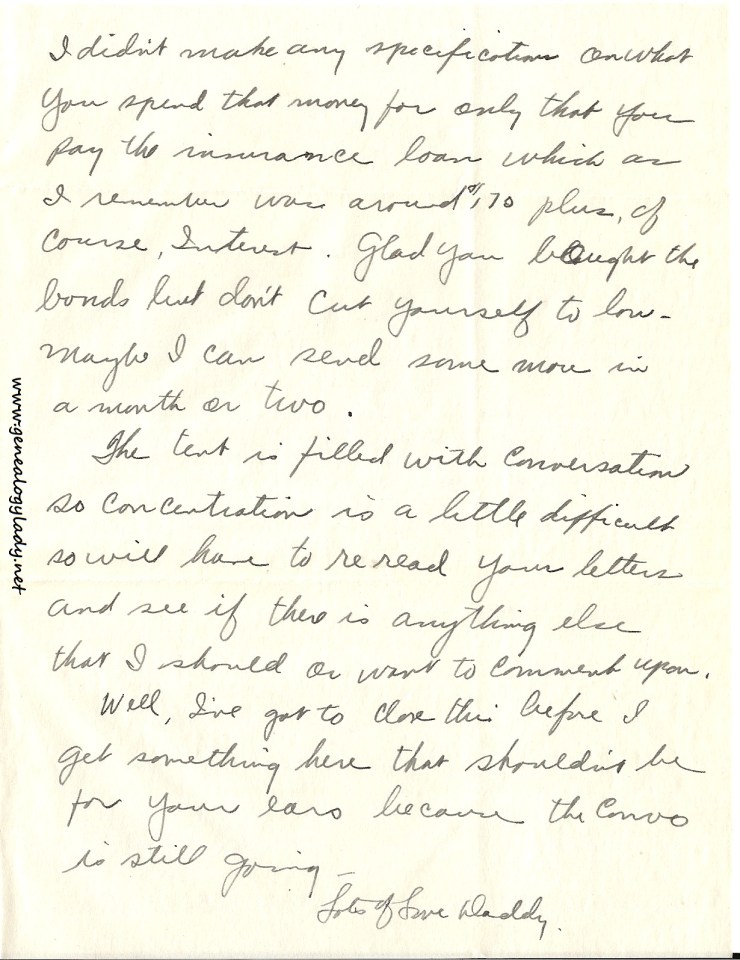 I didn't make any specifications on what
you spend that money for only that you
pay the insurance loan which as
I remember was around $170 plus, of
course, Interest. Glad you bought the
bonds but don't cut yourself to low-
Maybe I can send some more in
a month or two.
The tent is filled with conversation
so concentration is a little difficult
so will have to reread your letters
and see if there is anything else
that I should or want to comment upon.
Well, I've got to close this before I
get something here that shouldn't be
for your ears because the convo
is still going-
Lots of Love Daddy.
www.genealogylady.net